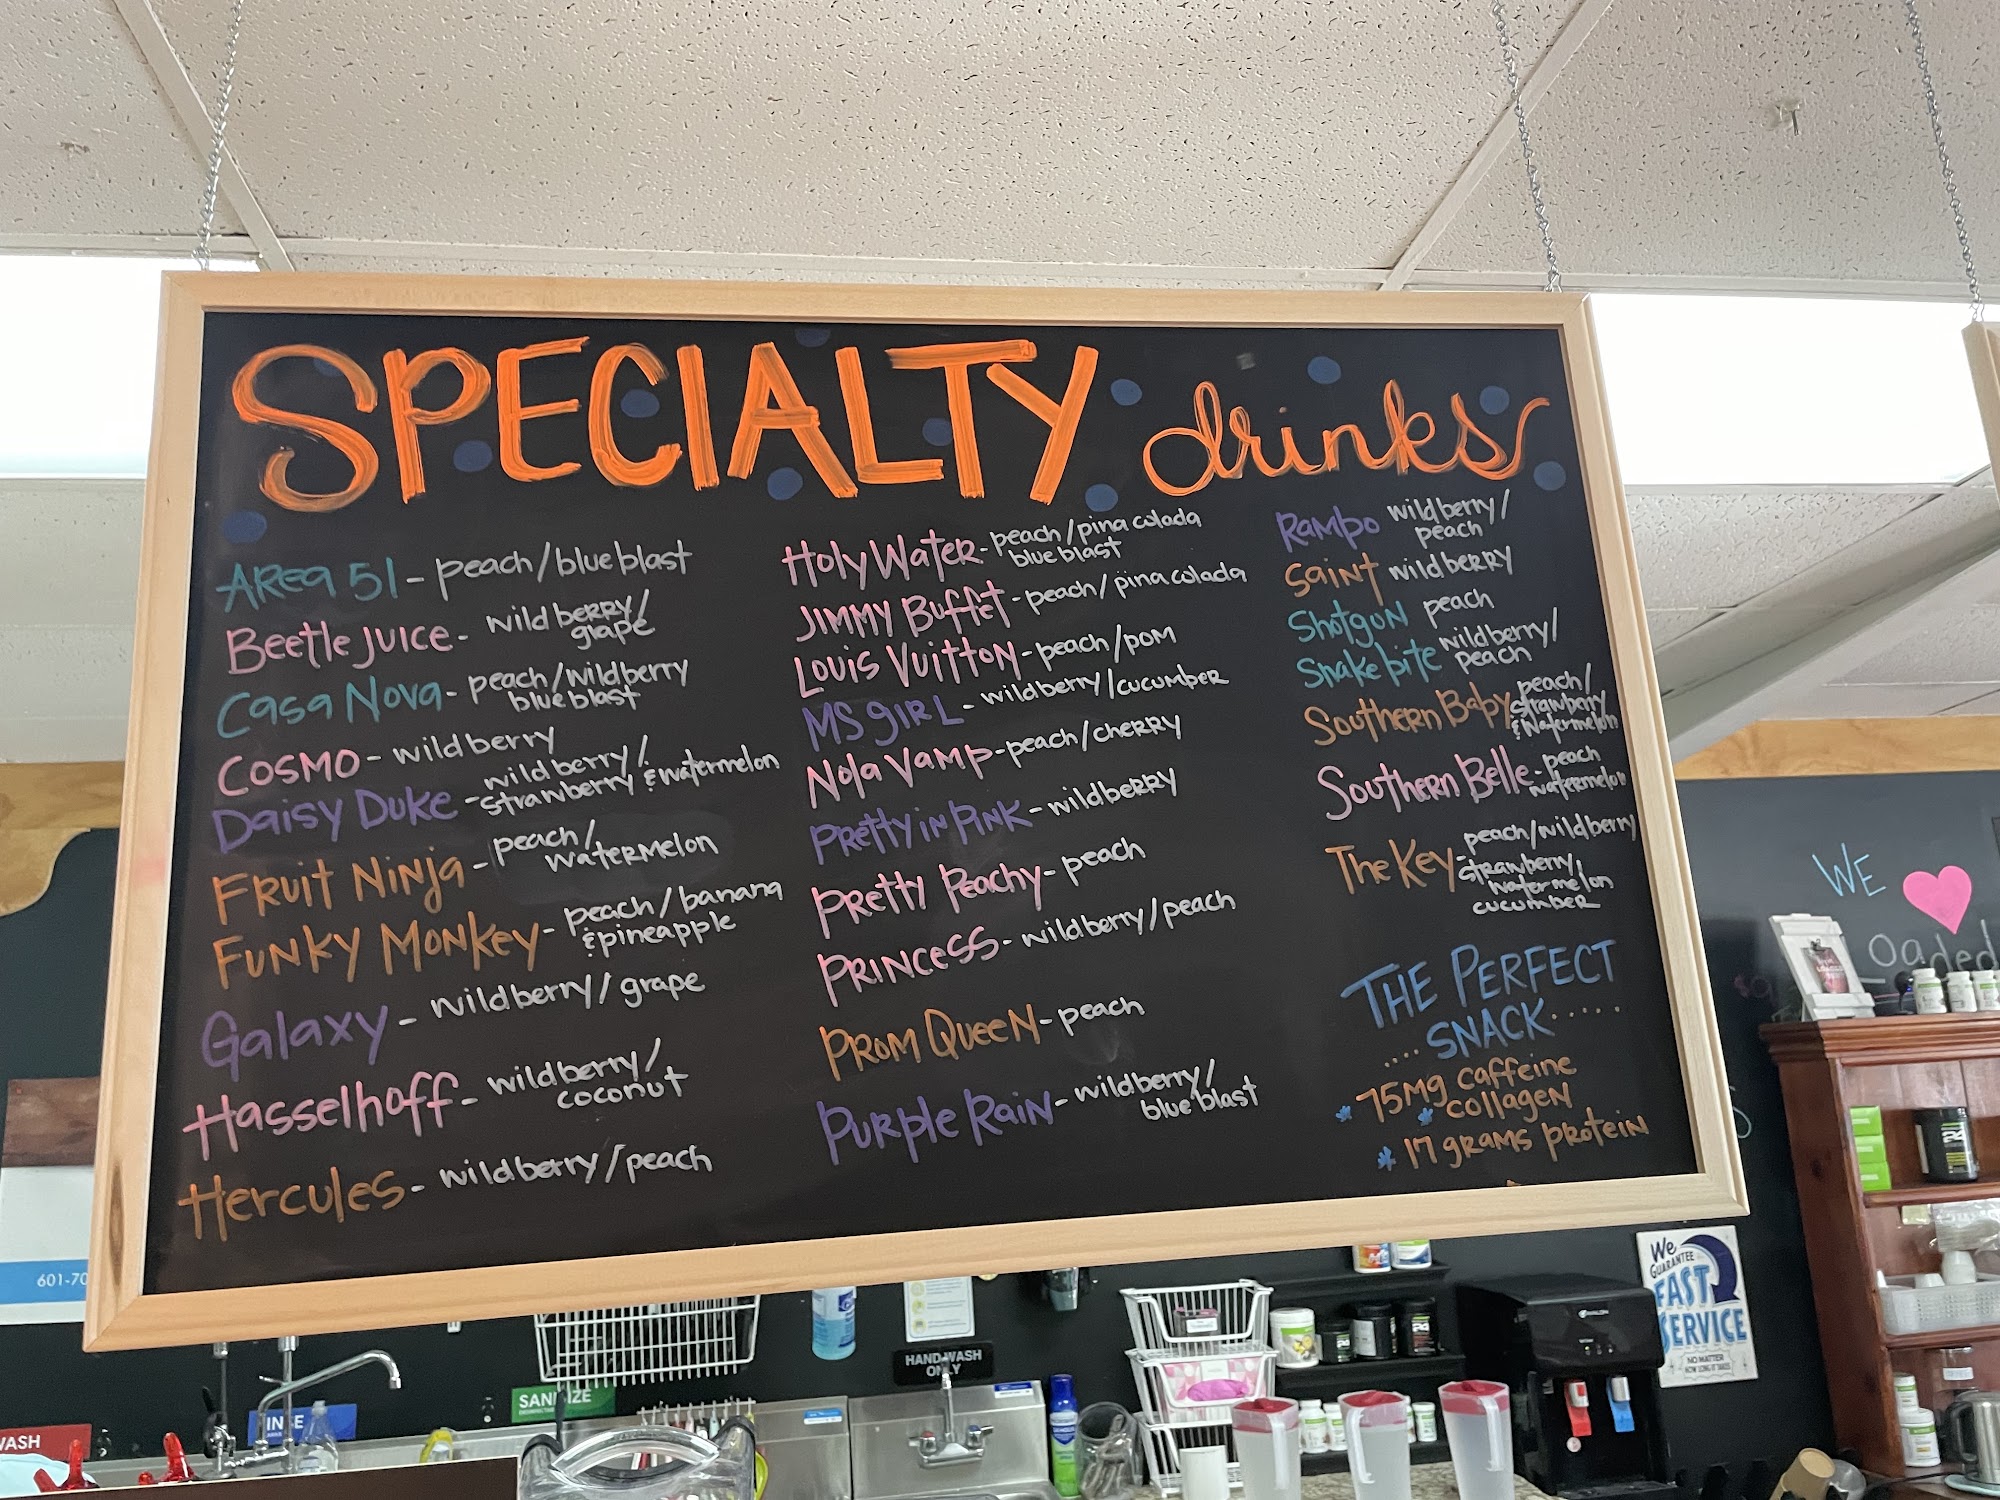 SPECIALTY drinks
Area 51 - peach/blue blast
Beetle Juice - wild berry/
grape
Casa Nova - peach/wildberry
blue blast
Cosmo - wild berry
Daisy Duke - wild berry/
strawberry & watermelon
Fruit Ninja - peach/
watermelon
Funky Monkey - peach/banana
& pineapple
Galaxy - wildberry/grape
Hasselhoff - wildberry/
coconut
Hercules - wildberry/peach
Holy Water - peach/pina colada
blue blast
Jimmy Buffet - peach/pina colada
Louis Vuitton - peach/pom
MS GIRL - wildberry/cucumber
Nola Vamp - peach/cherry
Pretty in Pink - wildberry
Pretty Peachy - peach
Princess - wildberry/peach
Prom Queen - peach
Purple Rain - wildberry/
blue blast
Rambo wildberry/
peach
Saint wildberry
Shotgun peach
Snakebite wildberry/
peach
Southern Baby peach/
strawberry
& watermelon
Southern Belle - peach
watermelon
The Key - peach/wildberry
strawberry,
watermelon
cucumber
THE PERFECT
SNACK.....
* 75mg caffeine
* collagen
* 17 grams protein
WE
Loaded
601-70
We
GUARANTEE
FAST
SERVICE
NO MATTER
HOW LONG IT TAKES
HAND WASH
ONLY
SANITIZE
RINSE
WASH